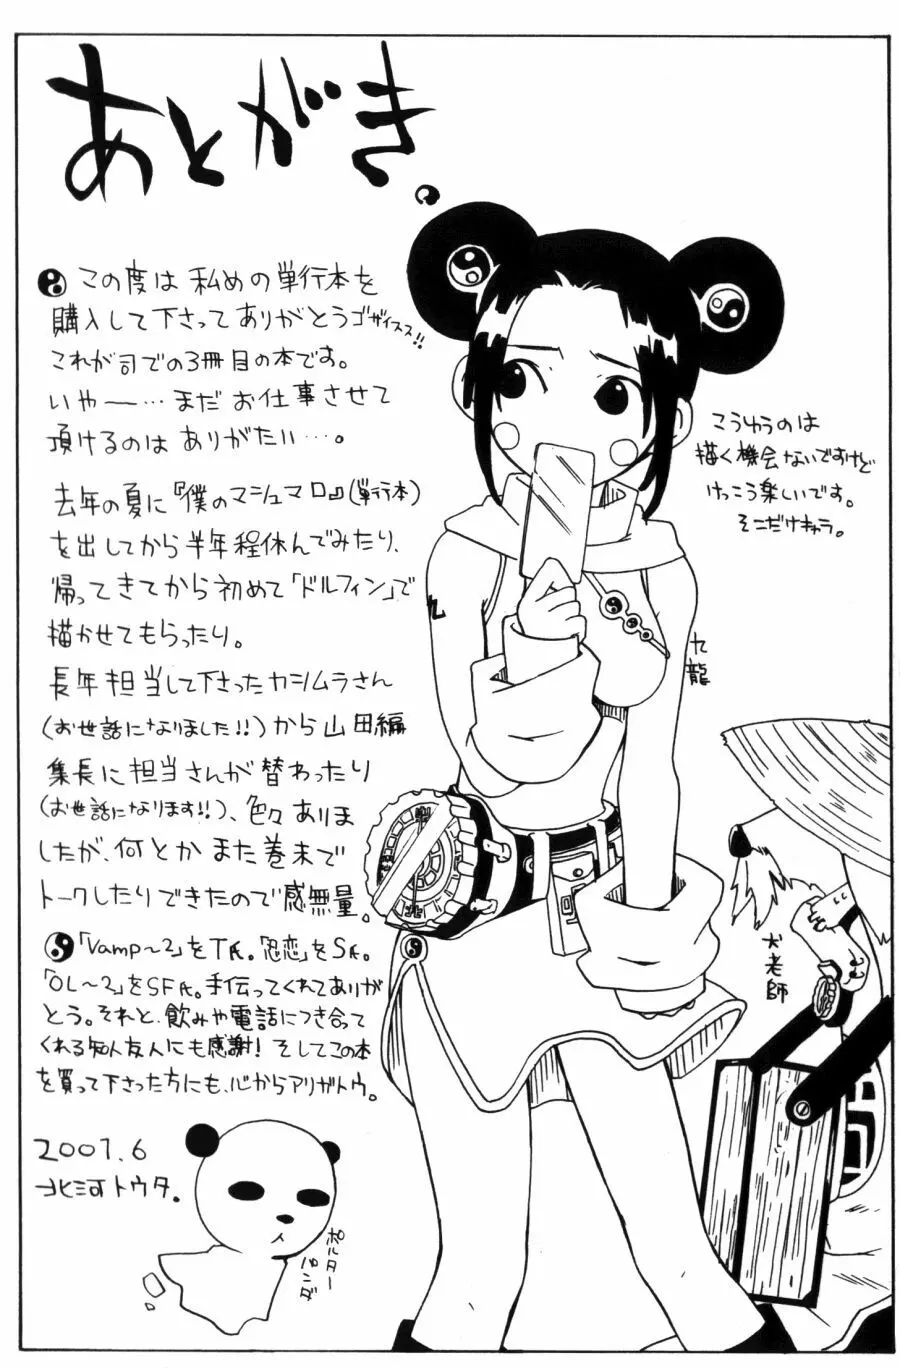 あとがき
この度は 私めの単行本を
購入して下さってありがとうゴザイスス!!
これが司での3冊目の本です。
いやー…まだお仕事させて
頂けるのは ありがたい…。
去年の夏に『僕のマシュマロ』(単行本)
を出してから半年程休んでみたり、
帰ってきてから初めて「ドルフィン」で
描かせてもらったり。
長年担当して下さったカシムラさん
(お世話になりました!!)から山田編
集長に担当さんが替わったり
(お世話になります!!)、色々ありま
したが、何とかまた巻末で
トークしたりできたので感無量。
「Vamp〜2」をTK。「忍恋」をSK。
「OL〜2」をSFK。手伝ってくれてありが
とう。それと、飲みや電話につき合って
くれる知人友人にも感謝! そしてこの本
を買って下さった方にも、心からアリガトウ。
2007.6
北河トウタ。
こうゆうのは
描く機会ないですけど
けっこう楽しいです。
そこだけキャラ。
九龍
犬老師
ポルターパンダ